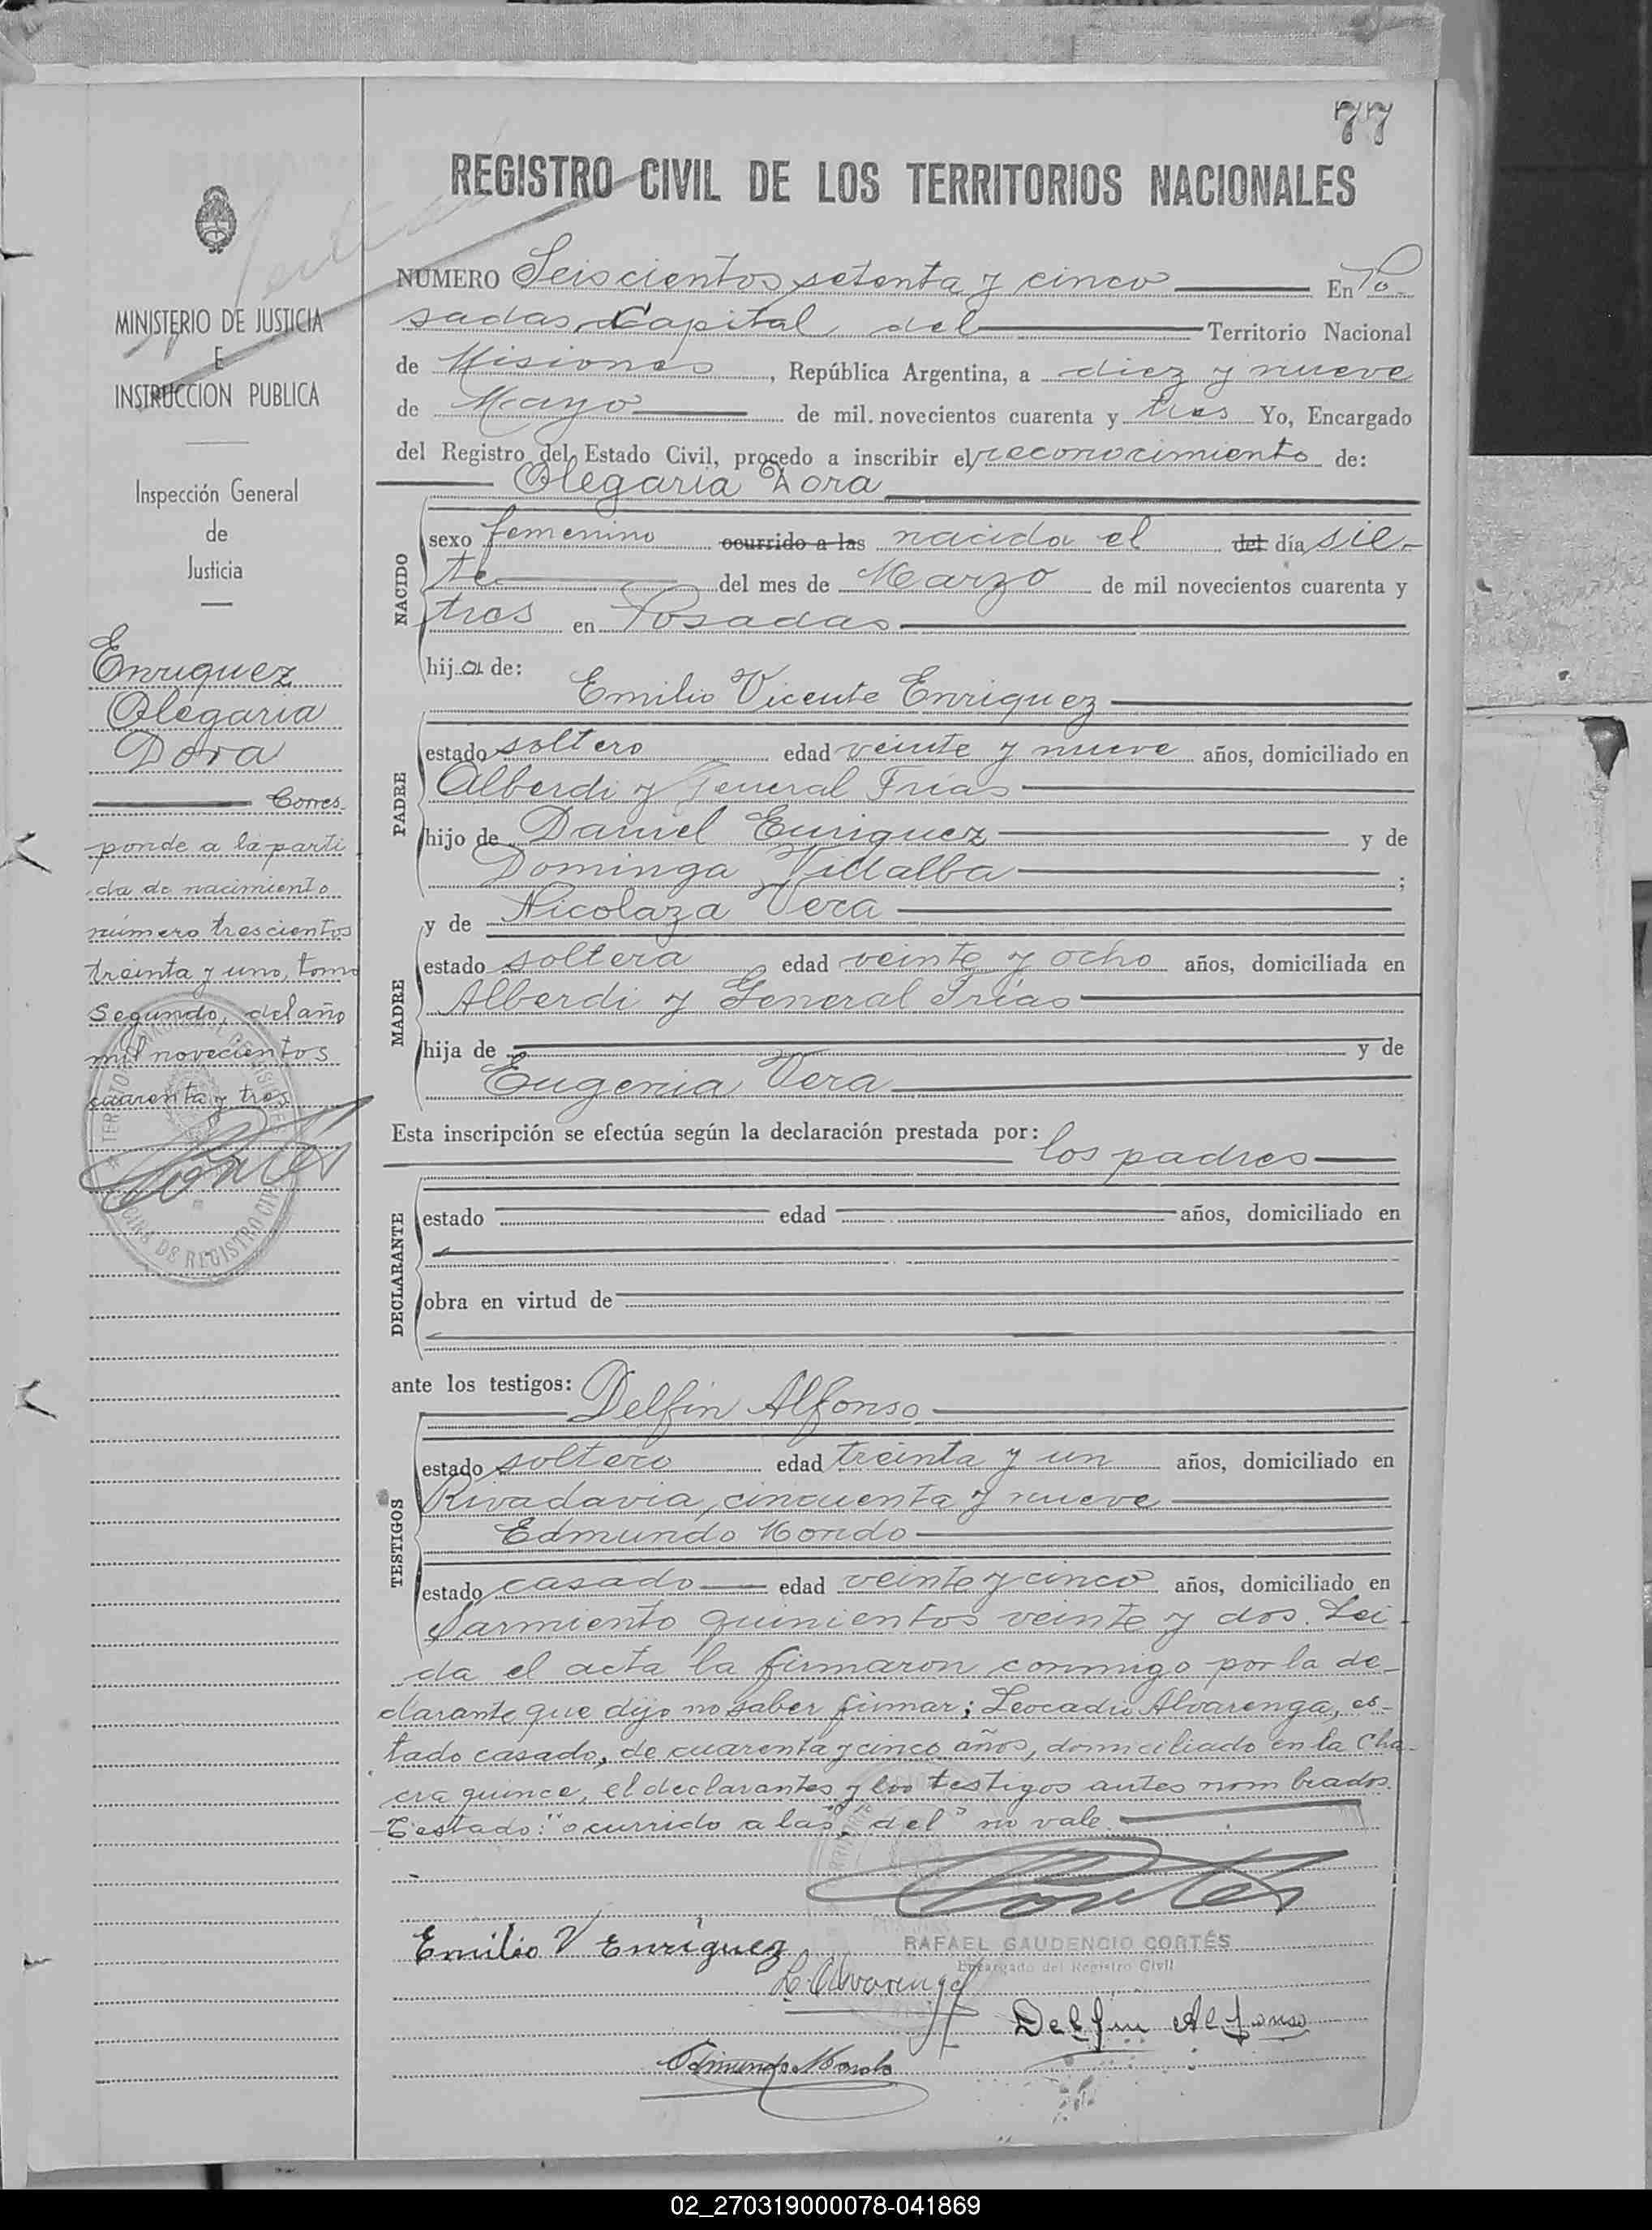 77
REGISTRO CIVIL DE LOS TERRITORIOS NACIONALES
MINISTERIO DE JUSTICIA
E
INSTRUCCION PUBLICA
Inspección General
de
Justicia
Enriquez
Olegaria
Dora
Corres-
ponde a la parti
da de nacimiento
número trescientos
treinta y uno, tomo
segundo, del año
mil novecientos
cuarenta y tres
NUMERO Seiscientos setenta y cinco En Po-
sadas Capital del Territorio Nacional
de Misiones, República Argentina, a diez y nueve
de Mayo de mil novecientos cuarenta y tres Yo, Encargado
del Registro del Estado Civil, procedo a inscribir el reconocimiento de:
Olegaria Dora
NACIDO
sexo femenino ocurrido a las nacida el del día sie-
te del mes de Marzo de mil novecientos cuarenta y
tres en Posadas
hija de:
Emilio Vicente Enriquez
PADRE
estado soltero edad veinte y nueve años, domiciliado en
Alberdi y General Frías
hijo de Daniel Enriquez y de
Dominga Villalba;
y de Nicolaza Vera
MADRE
estado soltera edad veinte y ocho años, domiciliada en
Alberdi y General Frías
hija de y de
Eugenia Vera
Esta inscripción se efectúa según la declaración prestada por:
los padres
DECLARANTE
estado edad años, domiciliado en
obra en virtud de
ante los testigos:
Delfin Alfonso
TESTIGOS
estado soltero edad treinta y un años, domiciliado en
Rivadavia, cincuenta y nueve
Edmundo
estado casado edad veinte y cinco años, domiciliado en
Sarmiento quinientos veinte y dos. Lei-
da el acta la firmaron conmigo por la de-
clarante que dijo no saber firmar; Leocadio Alvarenga, es-
tado casado, de cuarenta y cinco años, domiciliado en la Cha-
cra quince, el declarantes y los testigos antes nombrados.
Testado: "ocurrido a las", "del" no vale.
Cortés
RAFAEL GAUDENCIO CORTÉS
Encargado del Registro Civil
Emilio V Enríquez
L. Alvarenga
Delfin Alfonso
Edmundo
02_270319000078-041869